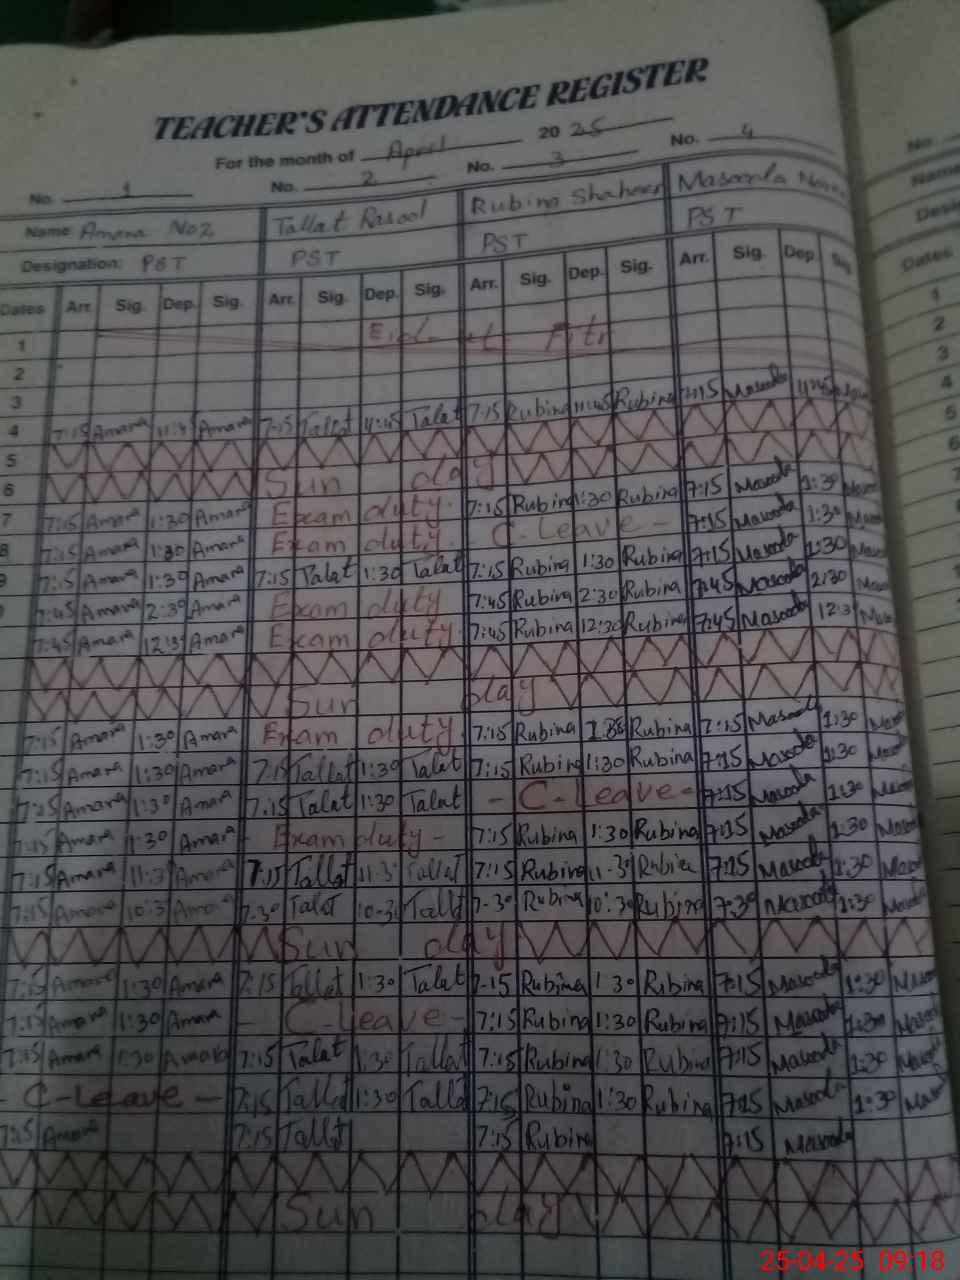 TEACHER'S ATTENDANCE REGISTER
For the month of April 2025
No. 1 No. 2 No. 3 No. 4 No.
Name Amara Noz Tallat Rasool Rubina Shaheen Masooda Name
Designation: PST PST PST PST
Dates Arr. Sig. Dep. Sig. Arr. Sig. Dep. Sig. Arr. Sig. Dep. Sig. Arr. Sig. Dep. Sig Dates
1 Eid-ul-Fitr 1
2 2
3 3
4 7:15 Amara 11:45 Amara 7:15 Tallat 11:45 Talat 7:15 Rubina 11:45 Rubina 7:15 Masooda 11:45 4
5 5
6 Sun day
7 7:15 Amara 1:30 Amara Exam duty 7:15 Rubina 1:30 Rubina 7:15 Masooda 1:30
8 7:15 Amara 1:30 Amara Exam duty C-Leave - 7:15 Masooda 1:30
9 7:15 Amara 1:30 Amara 7:15 Talat 1:30 Talat 7:15 Rubina 1:30 Rubina 7:15 Masooda 1:30
7:45 Amara 2:30 Amara Exam duty 7:45 Rubina 2:30 Rubina 7:45 Masooda 2:30
7:45 Amara 12:3 Amara Exam duty 7:45 Rubina 12:30 Rubina 7:45 Masooda 12:3
Sun day
7:15 Amara 1:30 Amara Exam duty 7:15 Rubina Rubina 7:15 Masooda 1:30
7:15 Amara 1:30 Amara 7:15 Tallat 1:30 Talat 7:15 Rubina 1:30 Rubina 7:15 Masooda 1:30
7:15 Amara 1:30 Amara 7:15 Talat 1:30 Talat - C-Leave - 7:15 Masooda 1:30
7:15 Amara 1:30 Amara - Exam duty - 7:15 Rubina 1:30 Rubina 7:15 Masooda 1:30
7:15 Amara 11:3 Amara 7:15 Tallat 11:3 Tallat 7:15 Rubina 11:30 Rubina 7:15 Masooda 1:30
7:15 Amara 10:3 Amara 7:30 Talat 10:3 Tallt 7:30 Rubina 10:30 Rubina 7:30 Masooda 1:30
Sun day
7:15 Amara 1:30 Amara 7:15 Tallat 1:30 Talat 7:15 Rubina 1:30 Rubina 7:15 Masooda 1:30
7:15 Amara 1:30 Amara - C-Leave - 7:15 Rubina 1:30 Rubina 7:15 Masooda 1:30
7:15 Amara 1:30 Amara 7:15 Talat 1:30 Tallat 7:15 Rubina 1:30 Rubina 7:15 Masooda 1:30
- C-Leave - 7:15 Tallat 1:30 Tallat 7:15 Rubina 1:30 Rubina 7:15 Masooda 1:30
7:15 Amara 7:15 Tallat 7:15 Rubina 7:15 Masooda
Sun day
25-04-25 09:18